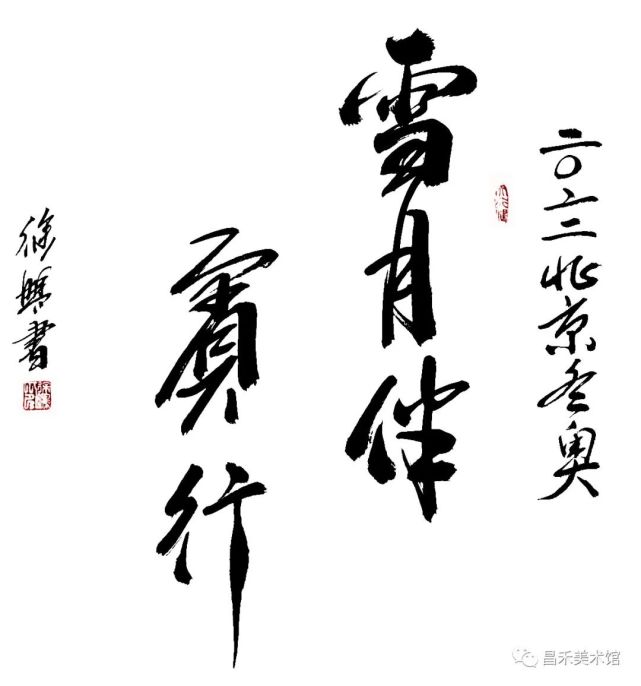 二〇二二北京冬奥
雪月伴
賓行
徐
書
昌禾美术馆